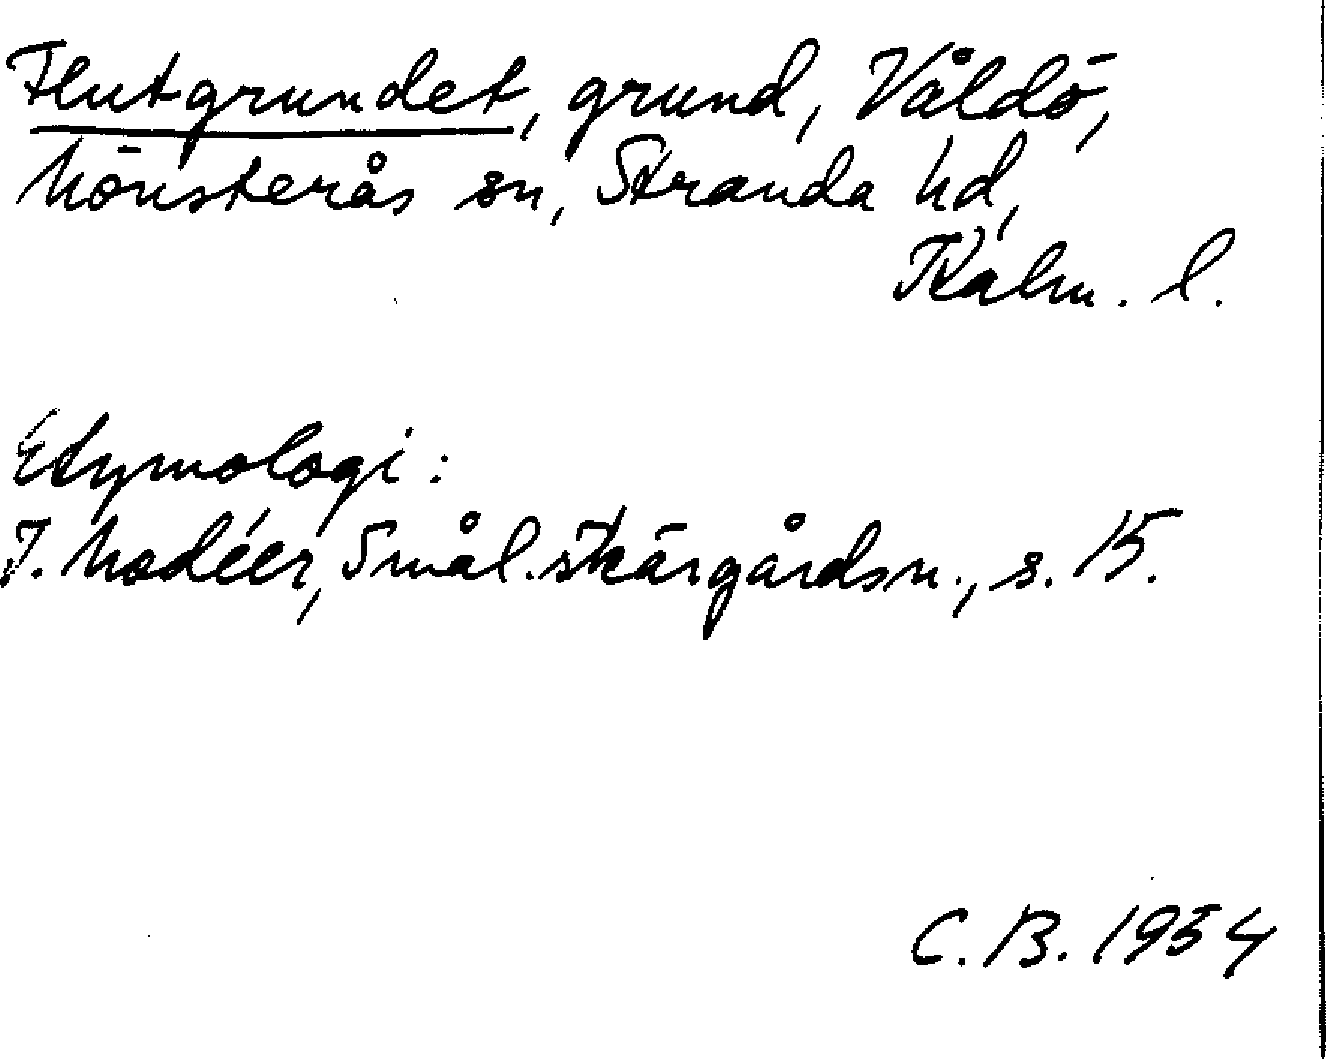 Flutgrundet, grund, Våldö,
Mönsterås sn, Stranda hd,
Kalm. l.
Etymologi:
I. Modéer, Smål. skärgårdsn., s. 15.
C. B. 1954